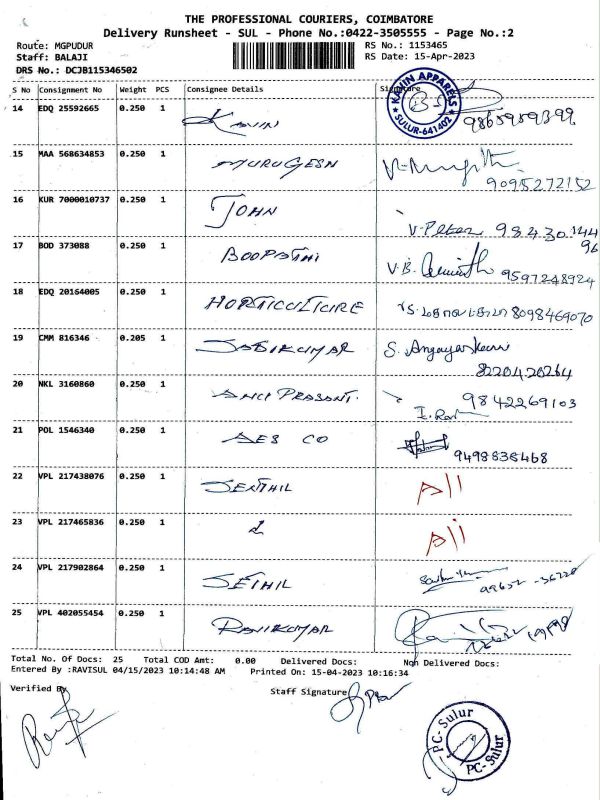 THE PROFESSIONAL COURIERS, COIMBATORE
Delivery Runsheet - SUL - Phone No.:0422-3505555 - Page No.:2
Route: MGPUDUR RS No.: 1153465
Staff: BALAJI RS Date: 15-Apr-2023
DRS No.: DCJB115346502
S No Consignment No Weight PCS Consignee Details Signature
KAVIN APPARELS
SULUR-641402
14 EDQ 25592665 0.250 1 KAVIN 9865959399
15 MAA 568634853 0.250 1 MURUGESN
9095272152
16 KUR 7000010737 0.250 1 JOHN
V. Peter 98430 144
96
17 BOD 373088 0.250 1 BOOPATHI
V.B. 9597248924
18 EDQ 20164005 0.250 1 HORTICULTCIRE 8098469070
19 CMM 816346 0.205 1 SASIKUMAR S. Angayarkanni
8220420264
20 NKL 3160860 0.250 1 9842269103
21 POL 1546340 0.250 1 AES CO
9498838468
22 VPL 217438076 0.250 1 SENTHIL Ali
23 VPL 217465836 0.250 1 Ali
24 VPL 217902864 0.250 1 SETHIL 99652-36220
25 VPL 402055454 0.250 1 RAVIKUMAR
Total No. Of Docs: 25 Total COD Amt: 0.00 Delivered Docs: Non Delivered Docs:
Entered By :RAVISUL 04/15/2023 10:14:48 AM Printed On: 15-04-2023 10:16:34
Verified By Staff Signature
PC-Sulur
PC-Sulur